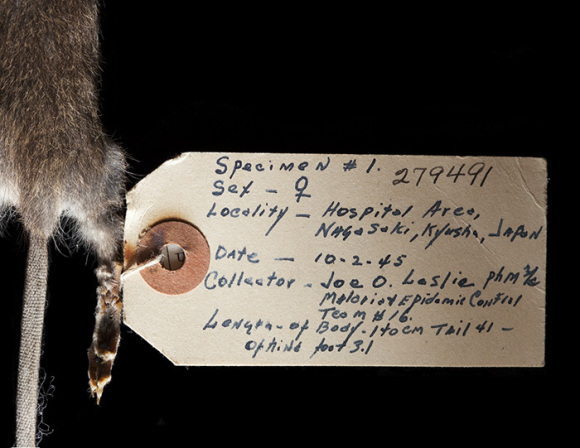 Specimen #1.
279491
Sex - ♀
Locality - Hospital Area,
Nagasaki, Kyushu, Japan
Date - 10-2-45
Collector - Joe O. Leslie PhM 3/c
Malarior Epidemic Control
Team #16.
Length - of Body - 140cm Tail 41 -
of hind foot 3.1